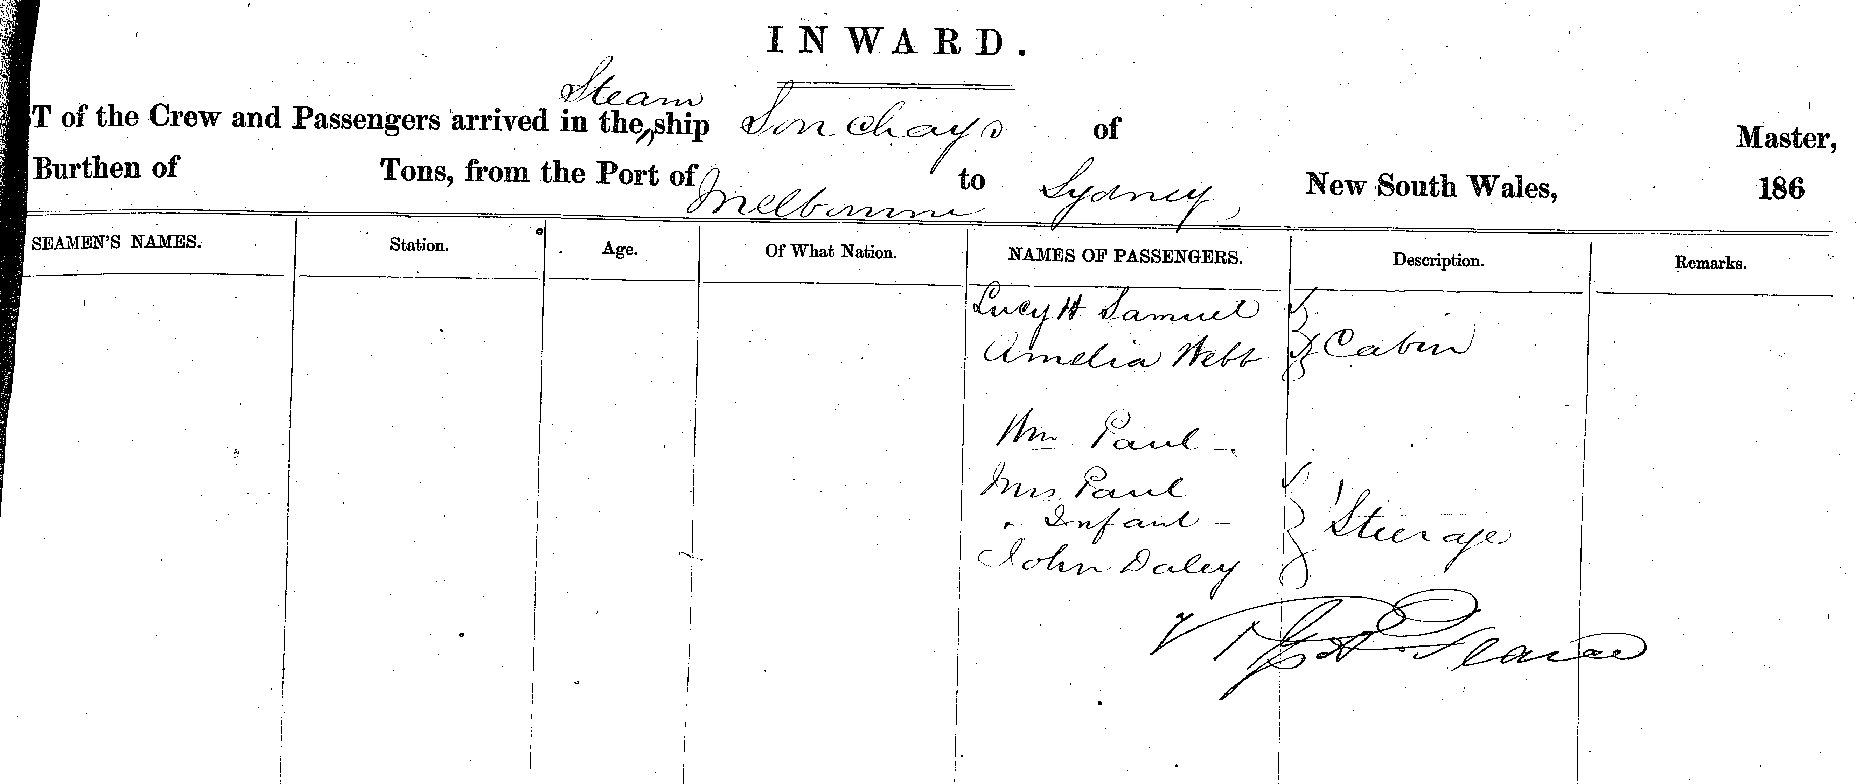 INWARD.
Steam
T of the Crew and Passengers arrived in the ship Sonchays of Master,
Burthen of Tons, from the Port of Melbourne to Sydney, New South Wales, 186
SEAMEN'S NAMES. Station. Age. Of What Nation. NAMES OF PASSENGERS. Description. Remarks.
Lucy H Samuel
Amelia Webb Cabin
Wm Paul -
Mrs Paul
" Infant - Steerage
John Daley